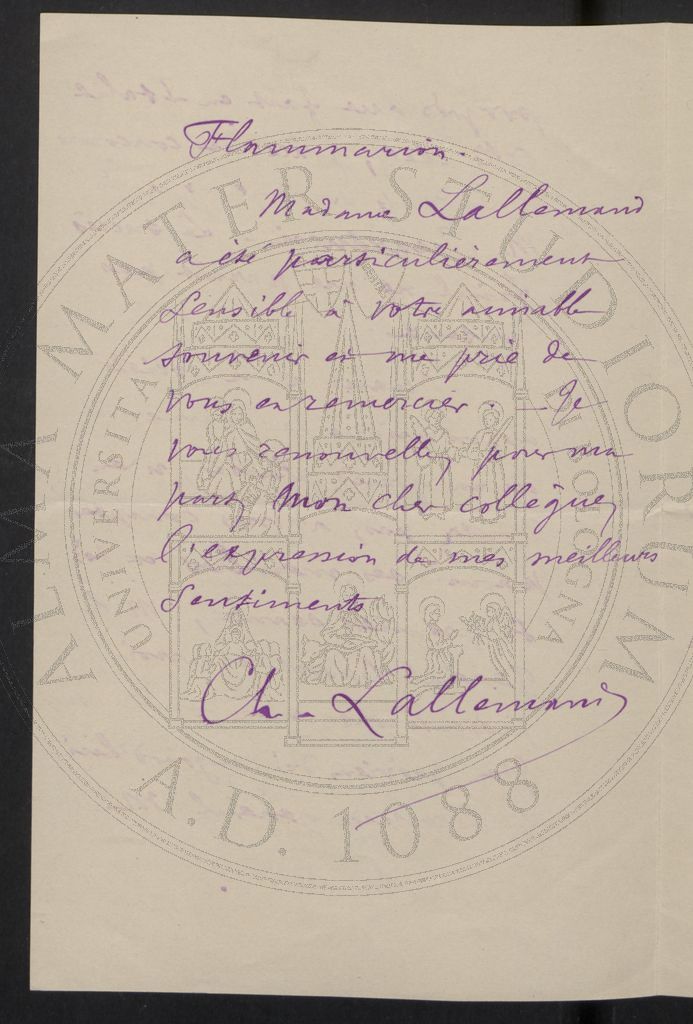 Flammarion.
Madame Lallemand
a été particulièrement
sensible à votre aimable
souvenir et me prie de
vous en remercier. - Je
vous renouvelle, pour ma
part, mon cher collègue,
l'expression de mes meilleurs
sentiments
Ch. Lallemand
ALMA MATER STUDIORUM
UNIVERSITA DI BOLOGNA
A.D. 1088